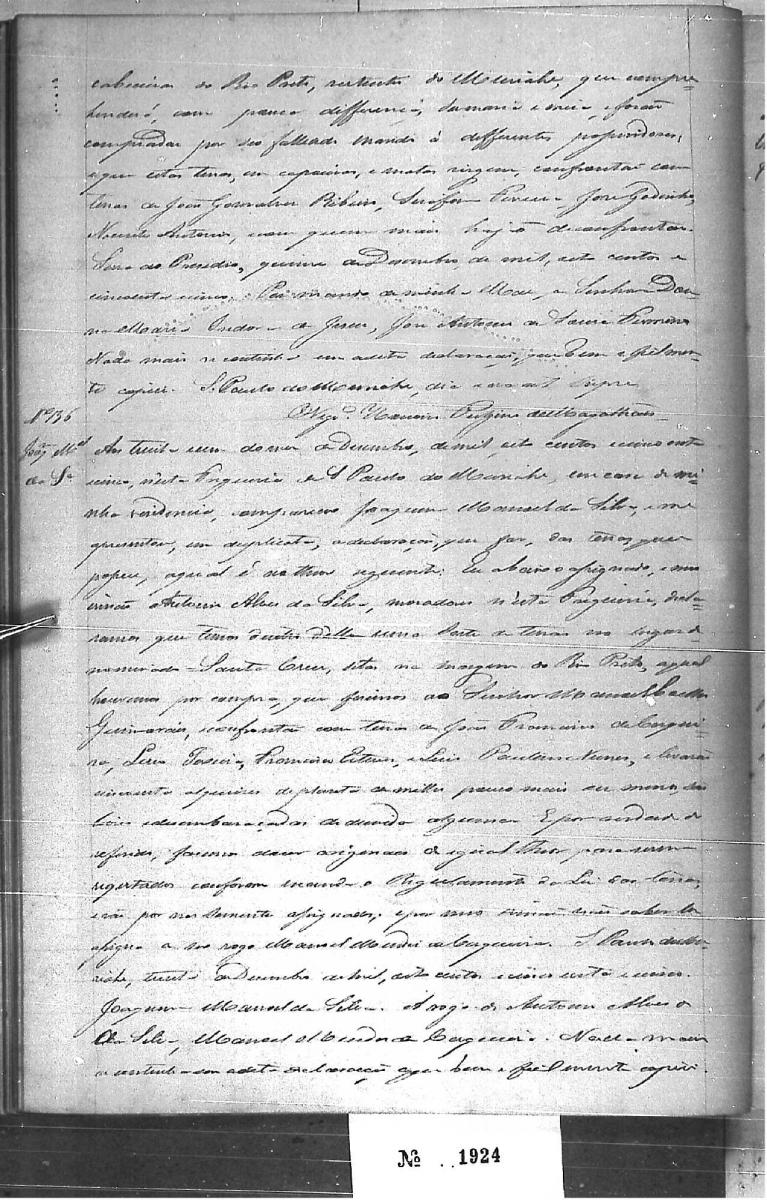 cabeceiras do Rio Preto, vertentes do Muriahe, que compre-
henderá, com pouca differença, sesmaria e meia, e forão
compradas por seo fallecido marido á differentes possuidores,
e que estas terras, em capoeiras, e matas virgens, confrontão com
terras de João Gonsalves Ribeiro, Serafim Pereira José Godinho,
Antonio, com quem mais haja de confrontar.
Serra do Presidio, quinze de Dezembro, de mil, oito centos e
cincoenta e cinco. Por mando de minha Mae, a Senhora Do-
na Maria de Jesus, José Antonio de Souza
Nada mais se continha em a dita declaração, que bem e fielmen-
te copiei. S. Paulo do Muriahe, dia era ut supra
O Vigrº.
Nº 136
Joaqm Mel
da Sa
Aos trinta e um do mez de Dezembro, de mil, oito centos e cincoenta e
cinco, nesta Freguesia de S Paulo do Muriahe, em casa de mi-
nha residencia, compareceo Joaquim Manoel da Silva, e me
apresentou, em duplicata, a declaração, que faz, das terras, que
possue, a qual é no theor seguinte: Eu abaixo assignado, e meu
irmão Antonio Alves da Silva, moradores n'esta Freguesia, decla-
ramos que temos dentro della uma Parte de terras no lugar de-
nominado = Santa Cruz, sitas na margem do Rio Preto, a qual
houvemos por compra, que fizemos ao Senhor Manoel
Guimarães, confronta com terras de João Francisco de Cerquei-
ra, Teixeira, Francisco Esteves, e Luis Nunes, e levará
cincoenta alqueires de planta de milho pouco mais ou menos, são
livres e desembaraçadas de duvida alguma. E por verdade o
referido, fazemos dois exigenciaes de igual theor, para serem
registrados conforme manda o Regulamento da Lei das terras,
e vão por nos somente assignados; e por meu irmão não saber ler
assigna a seo rogo Manoel Mendes de Cerqueira. S Paulo do Mu-
riahe, trinta de Dezembro de mil, oito centos e cincoenta e cinco.
Joaquim Manoel da Silva. A rogo de Antonio Alves
da Silva, Manoel Mendes de Cerqueira. Nada mais
se continha em a dita declaração que bem e fielmente copiei.
Nº 1924